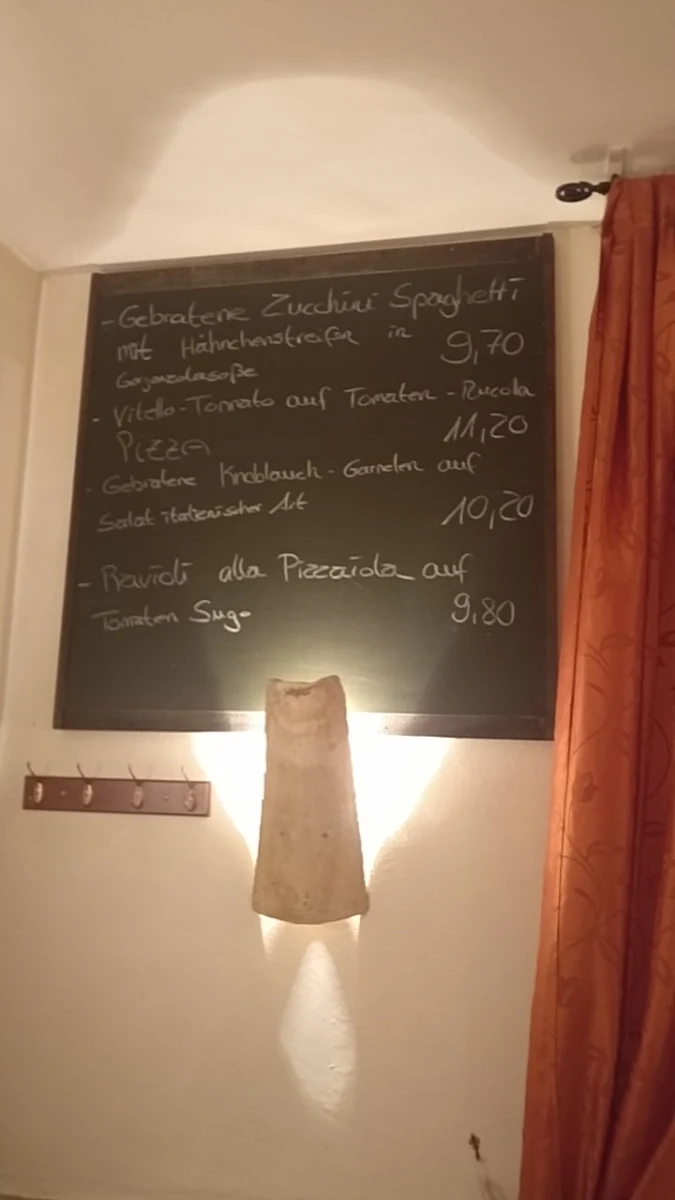 - Gebratene Zucchini Spaghetti
mit Hähnchenstreifen in 9,70
Gorgonzolasoße
- Vitello-Tonnato auf Tomaten-Rucola
PIZZA 11,20
- Gebratene Knoblauch-Garnelen auf
Salat italienischer Art 10,20
- Ravioli alla Pizzaiola auf
Tomaten Sugo 9,80